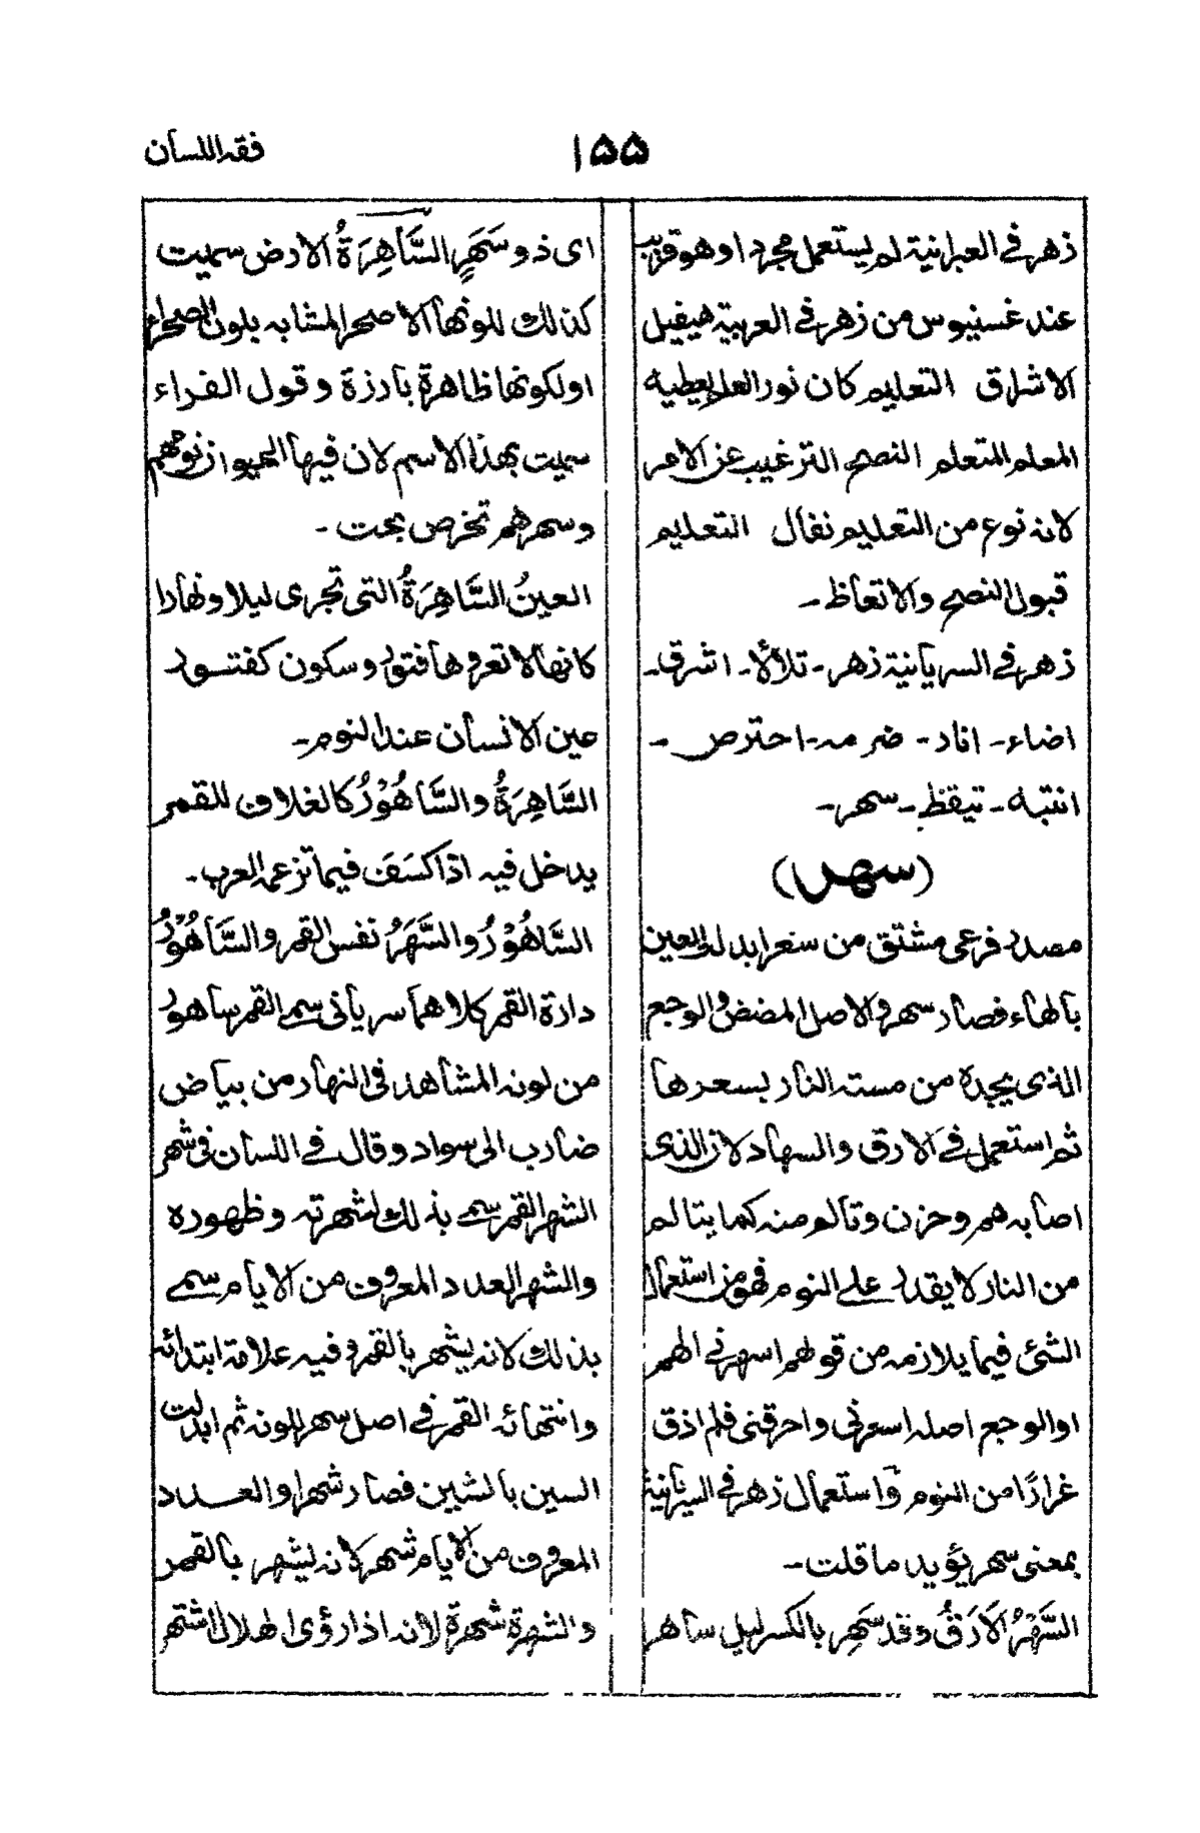 فقه اللسان
١٥٥
زهر في العبرانية لم يستعمل مجردا وهو قريب
عند غسنيوس من زهر في العربية هيفيل
الاشراق التعليم كان نور العلم يعطيه
المعلم المتعلم النصح الترغيب عن الامر
لانه نوع من التعليم نفال التعليم
قبول النصح والاتعاظ -
زهر في السريانية زهر - تلألأ - اشرق -
اضاء - انار - ضرمه - احترص -
انتبه - تيقظ - سهر -
(سهر)
مصدر فرعى مشتق من سعر ابدلت العين
بالهاء فصار سهر والاصل المضض والوجع
الذى يجده من مسته النار بسعرها
ثم استعمل في الارق والسهاد لان الذى
اصابه هم وحزن وتألم منه كما يتالم
من النار لا يقدر على النوم فهو من استعمال
الشئ فيما يلازمه من قولهم اسهرنى الهم
او الوجع اصله اسعرنى واحرقنى فلم اذق
غرارًا من النوم واستعمال زهر في السريانية
بمعنى سهر يؤيد ما قلت -
السَّهَرُ الاَرَقُ وقد سَهِر بالكسر ليل ساهر
اى ذو سَهَرٍ السَّاهِرَةُ الارض سميت
كذلك للونها الاصحر المشابه بلون الصحراء
او لكونها ظاهرة بارزة وقول الفراء
سميت بهذا الاسم لان فيها الحيوان نومهم
وسهرهم تخرص بحت -
العينُ السَّاهِرَةُ التى تجرى ليلا ونهارا
كانها لا تعروها فتور وسكون كفتور
عين الانسان عند النوم -
السَّاهِرَةُ والسَّاهُوْرُ كالغلاف للقمر
يدخل فيه اذا كسَفَ فيما تزعمه العرب -
السَّاهُوْرُ والسَّهَرُ نفس القمر والسَّاهُوْرُ
دارة القمر كلاهما سريانى سمى القمر ساهور
من لونه المشاهد فى النهار من بياض
ضارب الى سواد وقال في اللسان فى شهر
الشهر القمر سمى بذلك لشهرته وظهوره
والشهر العدد المعروف من الايام سمى
بذلك لانه يشهر بالقمر وفيه علامة ابتدائه
وانتهائه القمر في اصل سهر للونه ثم ابدلت
السين بالشين فصار شهرا والعدد
المعروف من الايام شهر لانه يشهر بالقمر
والشهرة شهرة لانه اذا رؤى الهلال اشتهر